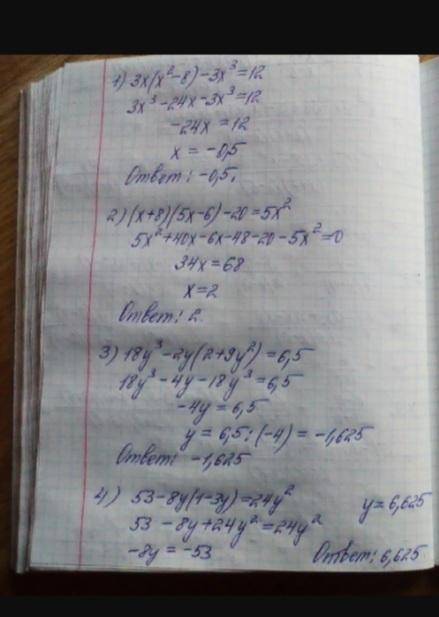 1) 3x(x²-8)-3x³=12
3x³-24x-3x³=12
-24x=12
x=-0,5
Ответ: -0,5.
2) (x+8)(5x-6)-20=5x²
5x²+40x-6x-48-20-5x²=0
34x=68
x=2
Ответ: 2.
3) 18y³-2y(2+9y²)=6,5
18y³-4y-18y³=6,5
-4y=6,5
y=6,5:(-4)=-1,625
Ответ: -1,625
4) 53-8y(1-3y)=24y²
53-8y+24y²=24y²
-8y=-53
y=6,625
Ответ: 6,625